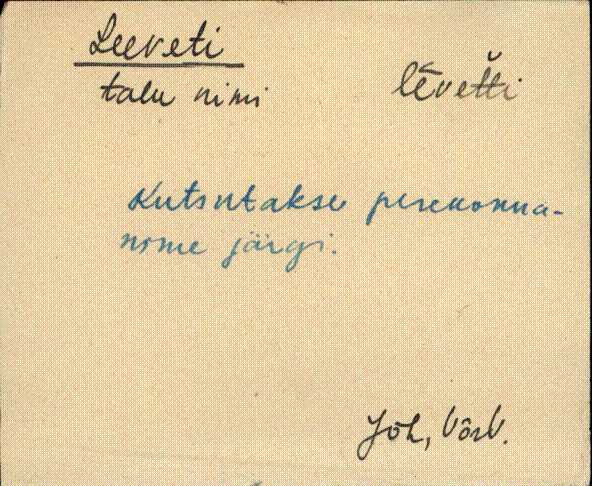 Leeveti
talu nimi lēvetti
Kutsutakse perekonna-
nime järgi.
Jõh, Võrk.